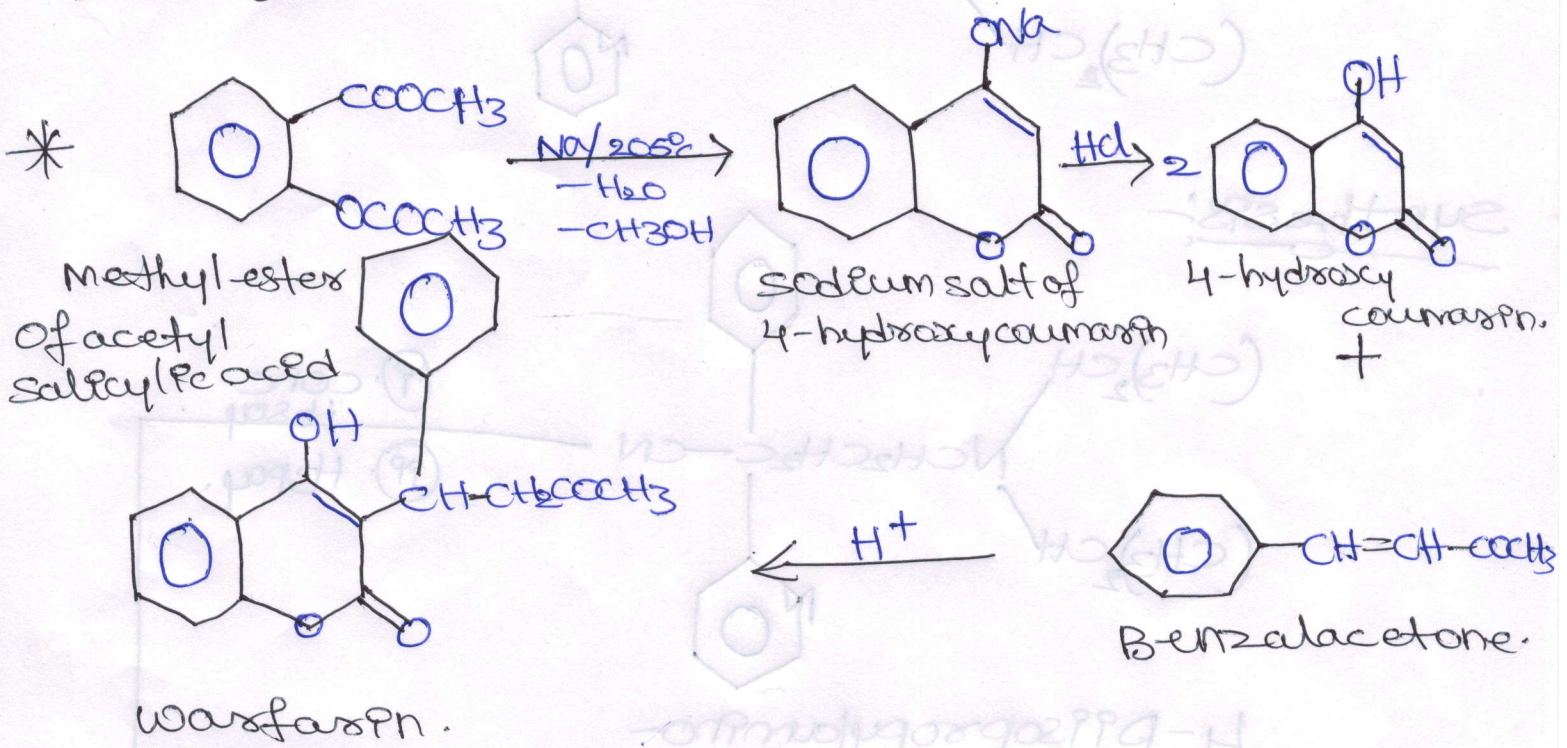 *
COOCH3
OCOCH3
Methyl ester
Of acetyl
salicylic acid
Na/205°c
-H2O
-CH3OH
ONa
O
O
sodium salt of
4-hydroxycoumarin
Hcl
2
OH
O
O
4-hydroxy
coumarin.
+
CH=CH-COCH3
Benzalacetone.
H+
OH
CH-CH2COCH3
O
O
warfarin.